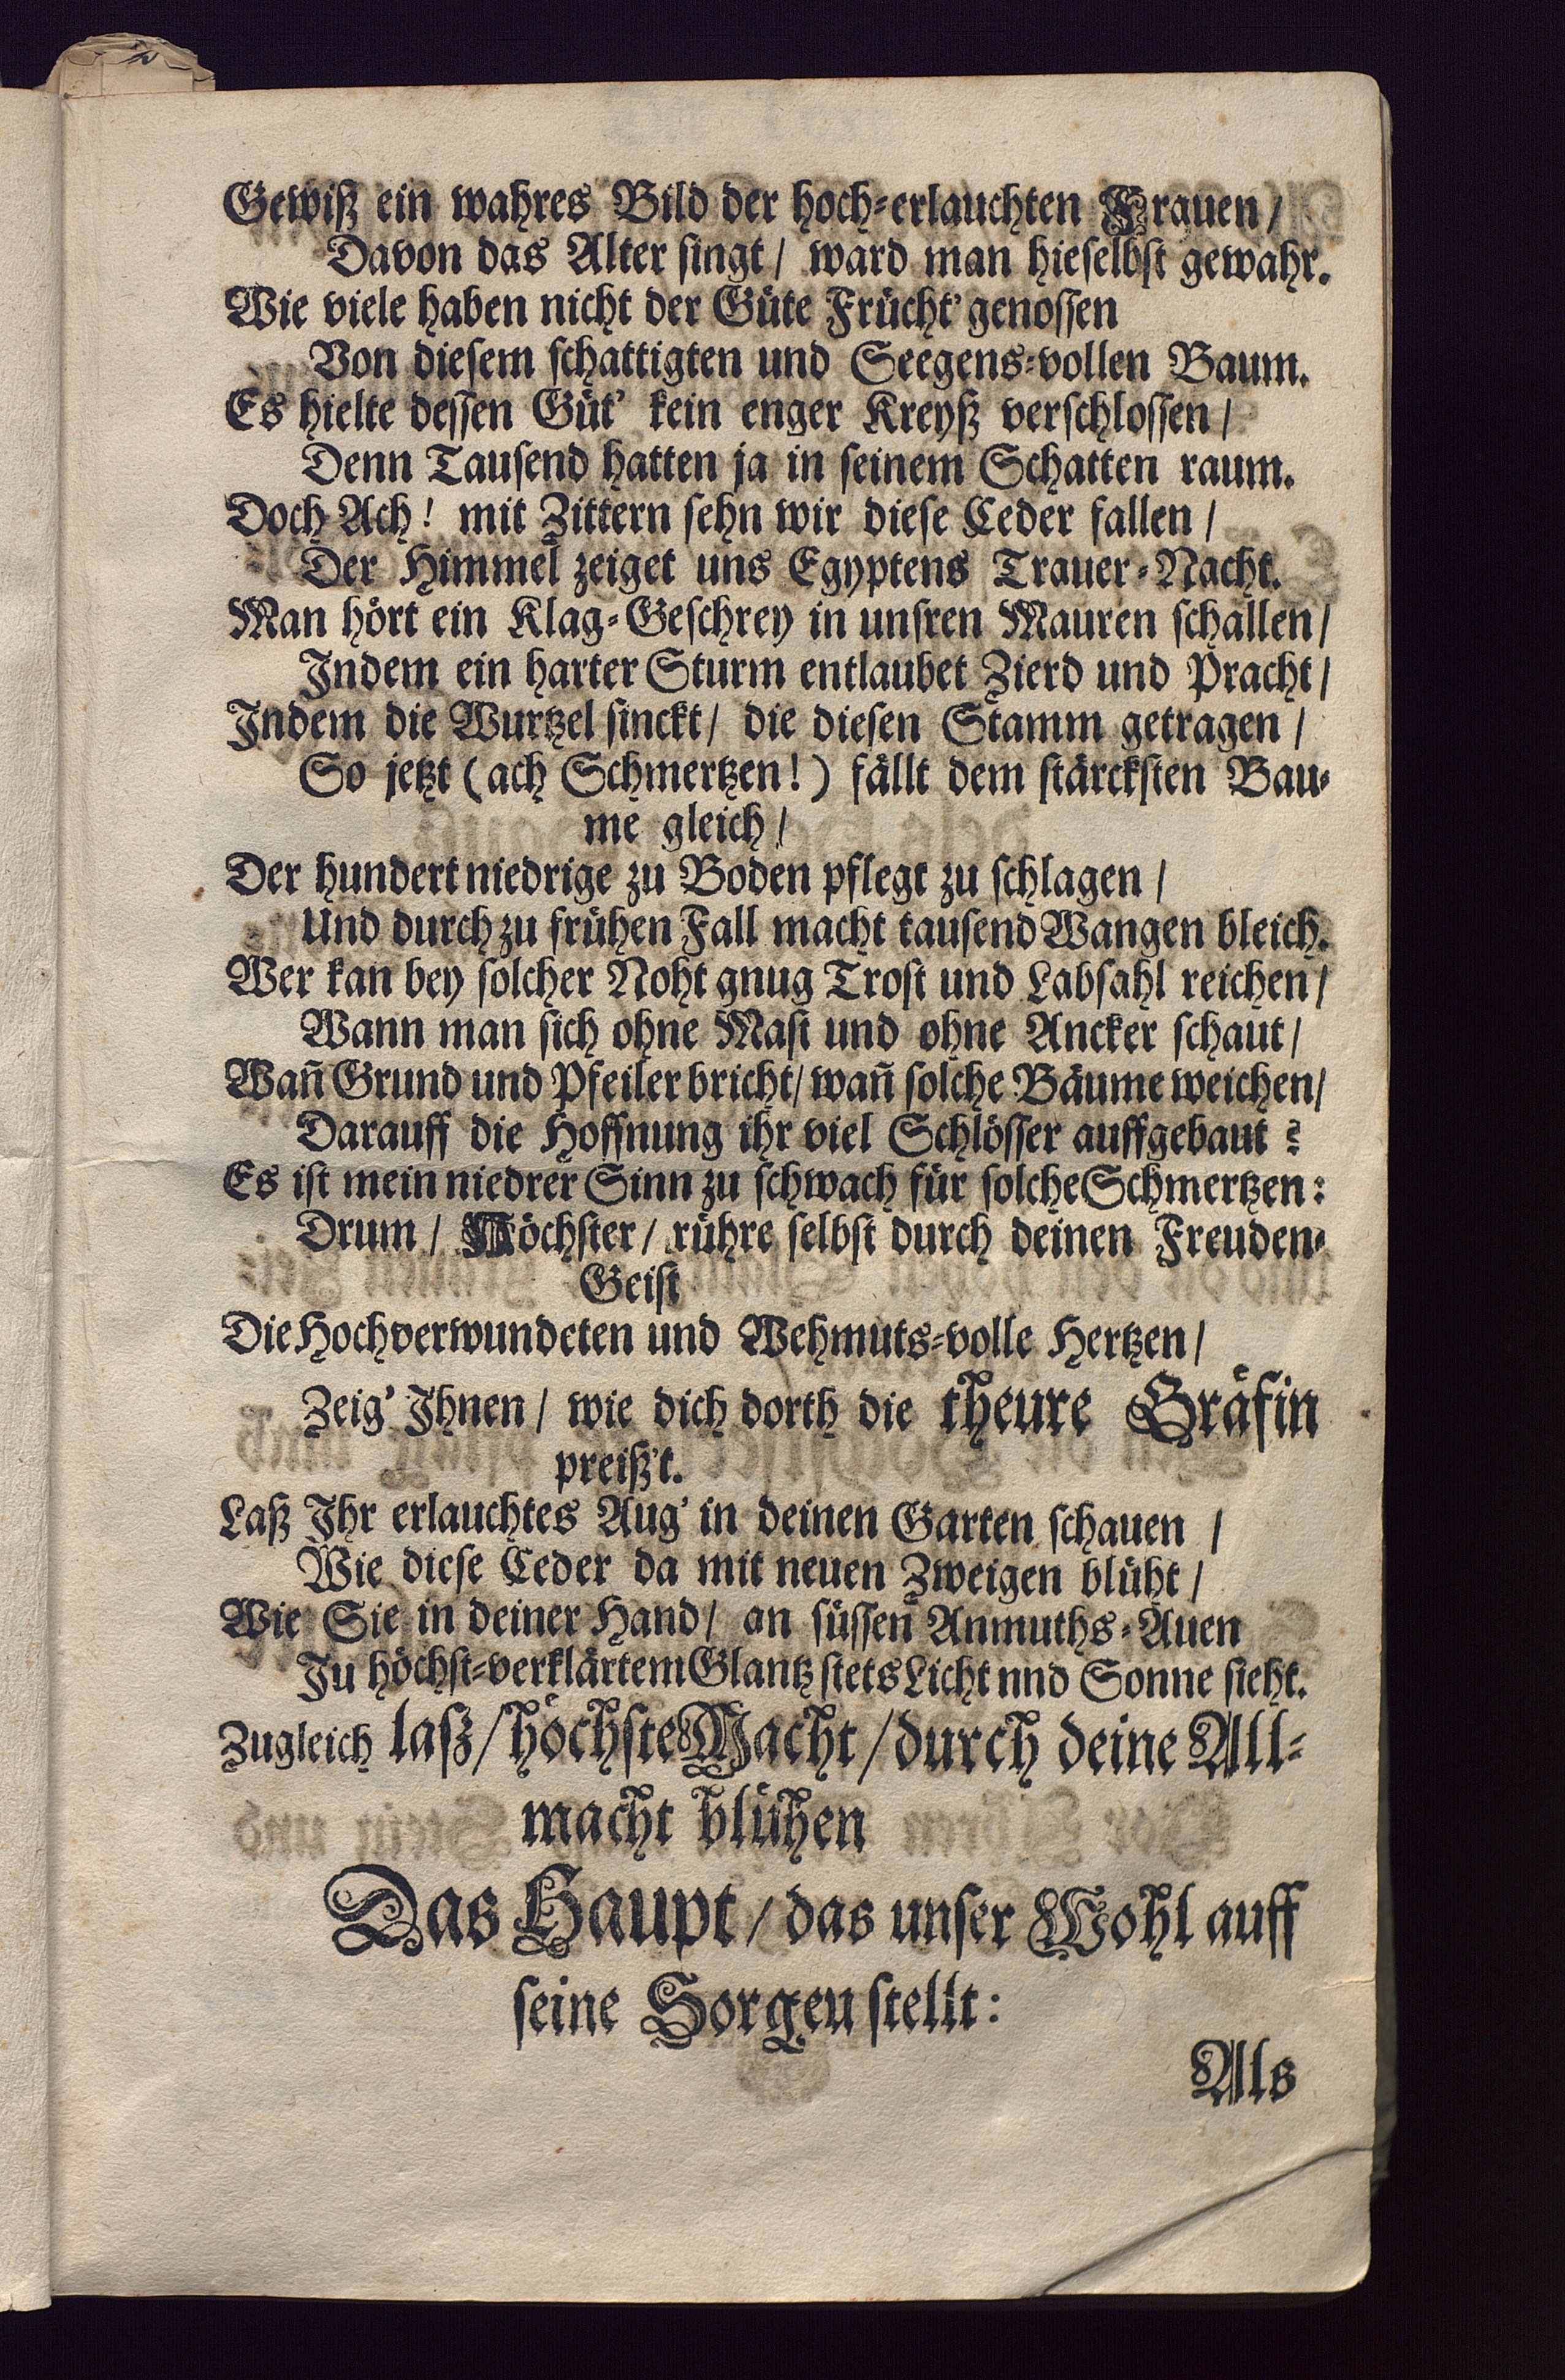 Gewiß ein wahres Bild der hoch-erlauchten Frauen/
Davon das Alter singt/ ward man hieselbst gewahr.
Wie viele haben nicht der Güte Frücht' genossen
Von diesem schattigten und Seegens-vollen Baum.
Es hielte dessen Güt' kein enger Kreyß verschlossen/
Denn Tausend hatten ja in seinem Schatten raum.
Doch Ach! mit Zittern sehn wir diese Ceder fallen/
Der Himmel zeiget uns Egyptens Trauer-Nacht.
Man hört ein Klag-Geschrey in unsren Mauren schallen/
Indem ein harter Sturm entlaubet Zierd und Pracht/
Indem die Wurtzel sinckt/ die diesen Stamm getragen/
So jetzt (ach Schmertzen!) fällt dem stärcksten Bau-
me gleich/
Der hundert niedrige zu Boden pflegt zu schlagen/
Und durch zu frühen Fall macht tausend Wangen bleich.
Wer kan bey solcher Noht gnug Trost und Labsahl reichen/
Wann man sich ohne Mast und ohne Ancker schaut/
Wañ Grund und Pfeiler bricht/ wañ solche Bäume weichen/
Darauff die Hoffnung ihr viel Schlösser auffgebaut?
Es ist mein niedrer Sinn zu schwach für solche Schmertzen:
Drum/ Höchster/ rühre selbst durch deinen Freuden-
Geist
Die Hochverwundeten und Wehmuts-volle Hertzen/
Zeig' Ihnen/ wie dich dorth die theure Gräfin
preiß't.
Laß Ihr erlauchtes Aug' in deinen Garten schauen/
Wie diese Ceder da mit neuen Zweigen blüht/
Wie Sie in deiner Hand/ an süssen Anmuths-Auen
Ju höchst-verklärtem Glantz stets Licht nnd Sonne sieht.
Zugleich laß/ höchste Macht/ durch deine All-
macht blühen
Das Haupt/ das unser Wohl auff
seine Sorgen stellt:
Als